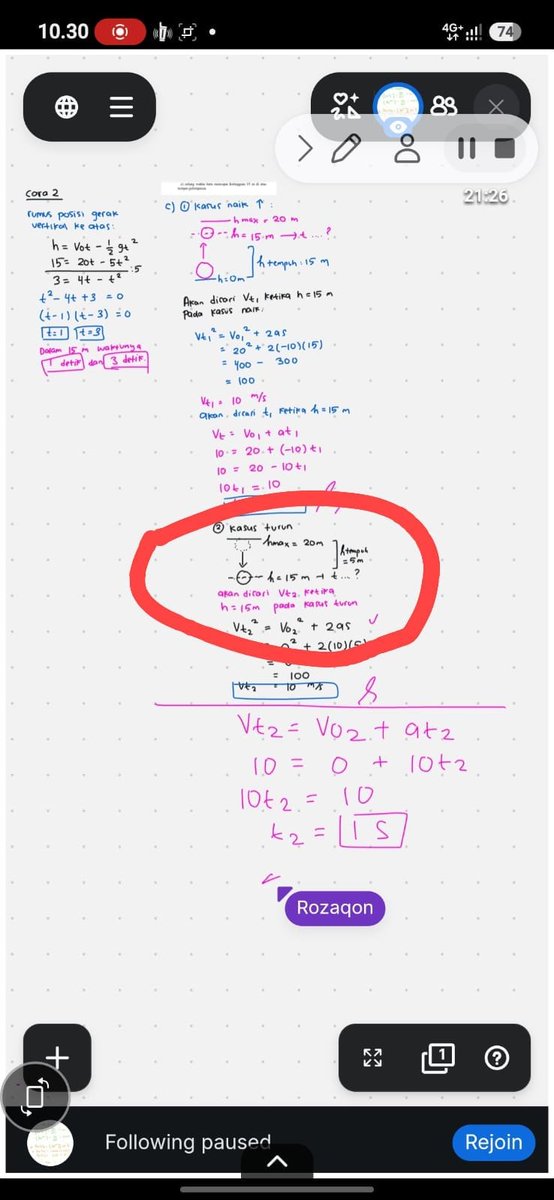 10.30
4G+
74
21:26
Cara 2
rumus posisi gerak
vertikal ke atas:
h = Vot - 1/2 gt²
15 = 20t - 5t² :5
3 = 4t - t²
t² - 4t + 3 = 0
(t-1)(t-3) = 0
t=1 t=3
Dalam 15 m waktunya
1 detik dan 3 detik.
c) ① Kasus naik ↑ :
hmax = 20 m
h = 15 m → t ...?
h tempuh = 15 m
h = 0m
Akan dicari Vt₁ ketika h = 15 m
Pada kasus naik.
Vt₁² = Vo₁² + 2as
= 20² + 2(-10)(15)
= 400 - 300
= 100
Vt₁ = 10 m/s
akan dicari t₁ ketika h = 15 m
Vt = Vo₁ + at₁
10 = 20 + (-10) t₁
10 = 20 - 10t₁
10t₁ = 10
② Kasus turun
hmax = 20m
h tempuh
= 5m
h = 15 m → t ...?
akan dicari Vt₂ ketika
h = 15m pada kasus turun
Vt₂² = Vo₂² + 2as
² + 2(10)(5)
= 100
Vt₂ = 10 m/s
Vt₂ = Vo₂ + at₂
10 = 0 + 10t₂
10t₂ = 10
t₂ = 1 s
Rozaqon
1
Following paused
Rejoin